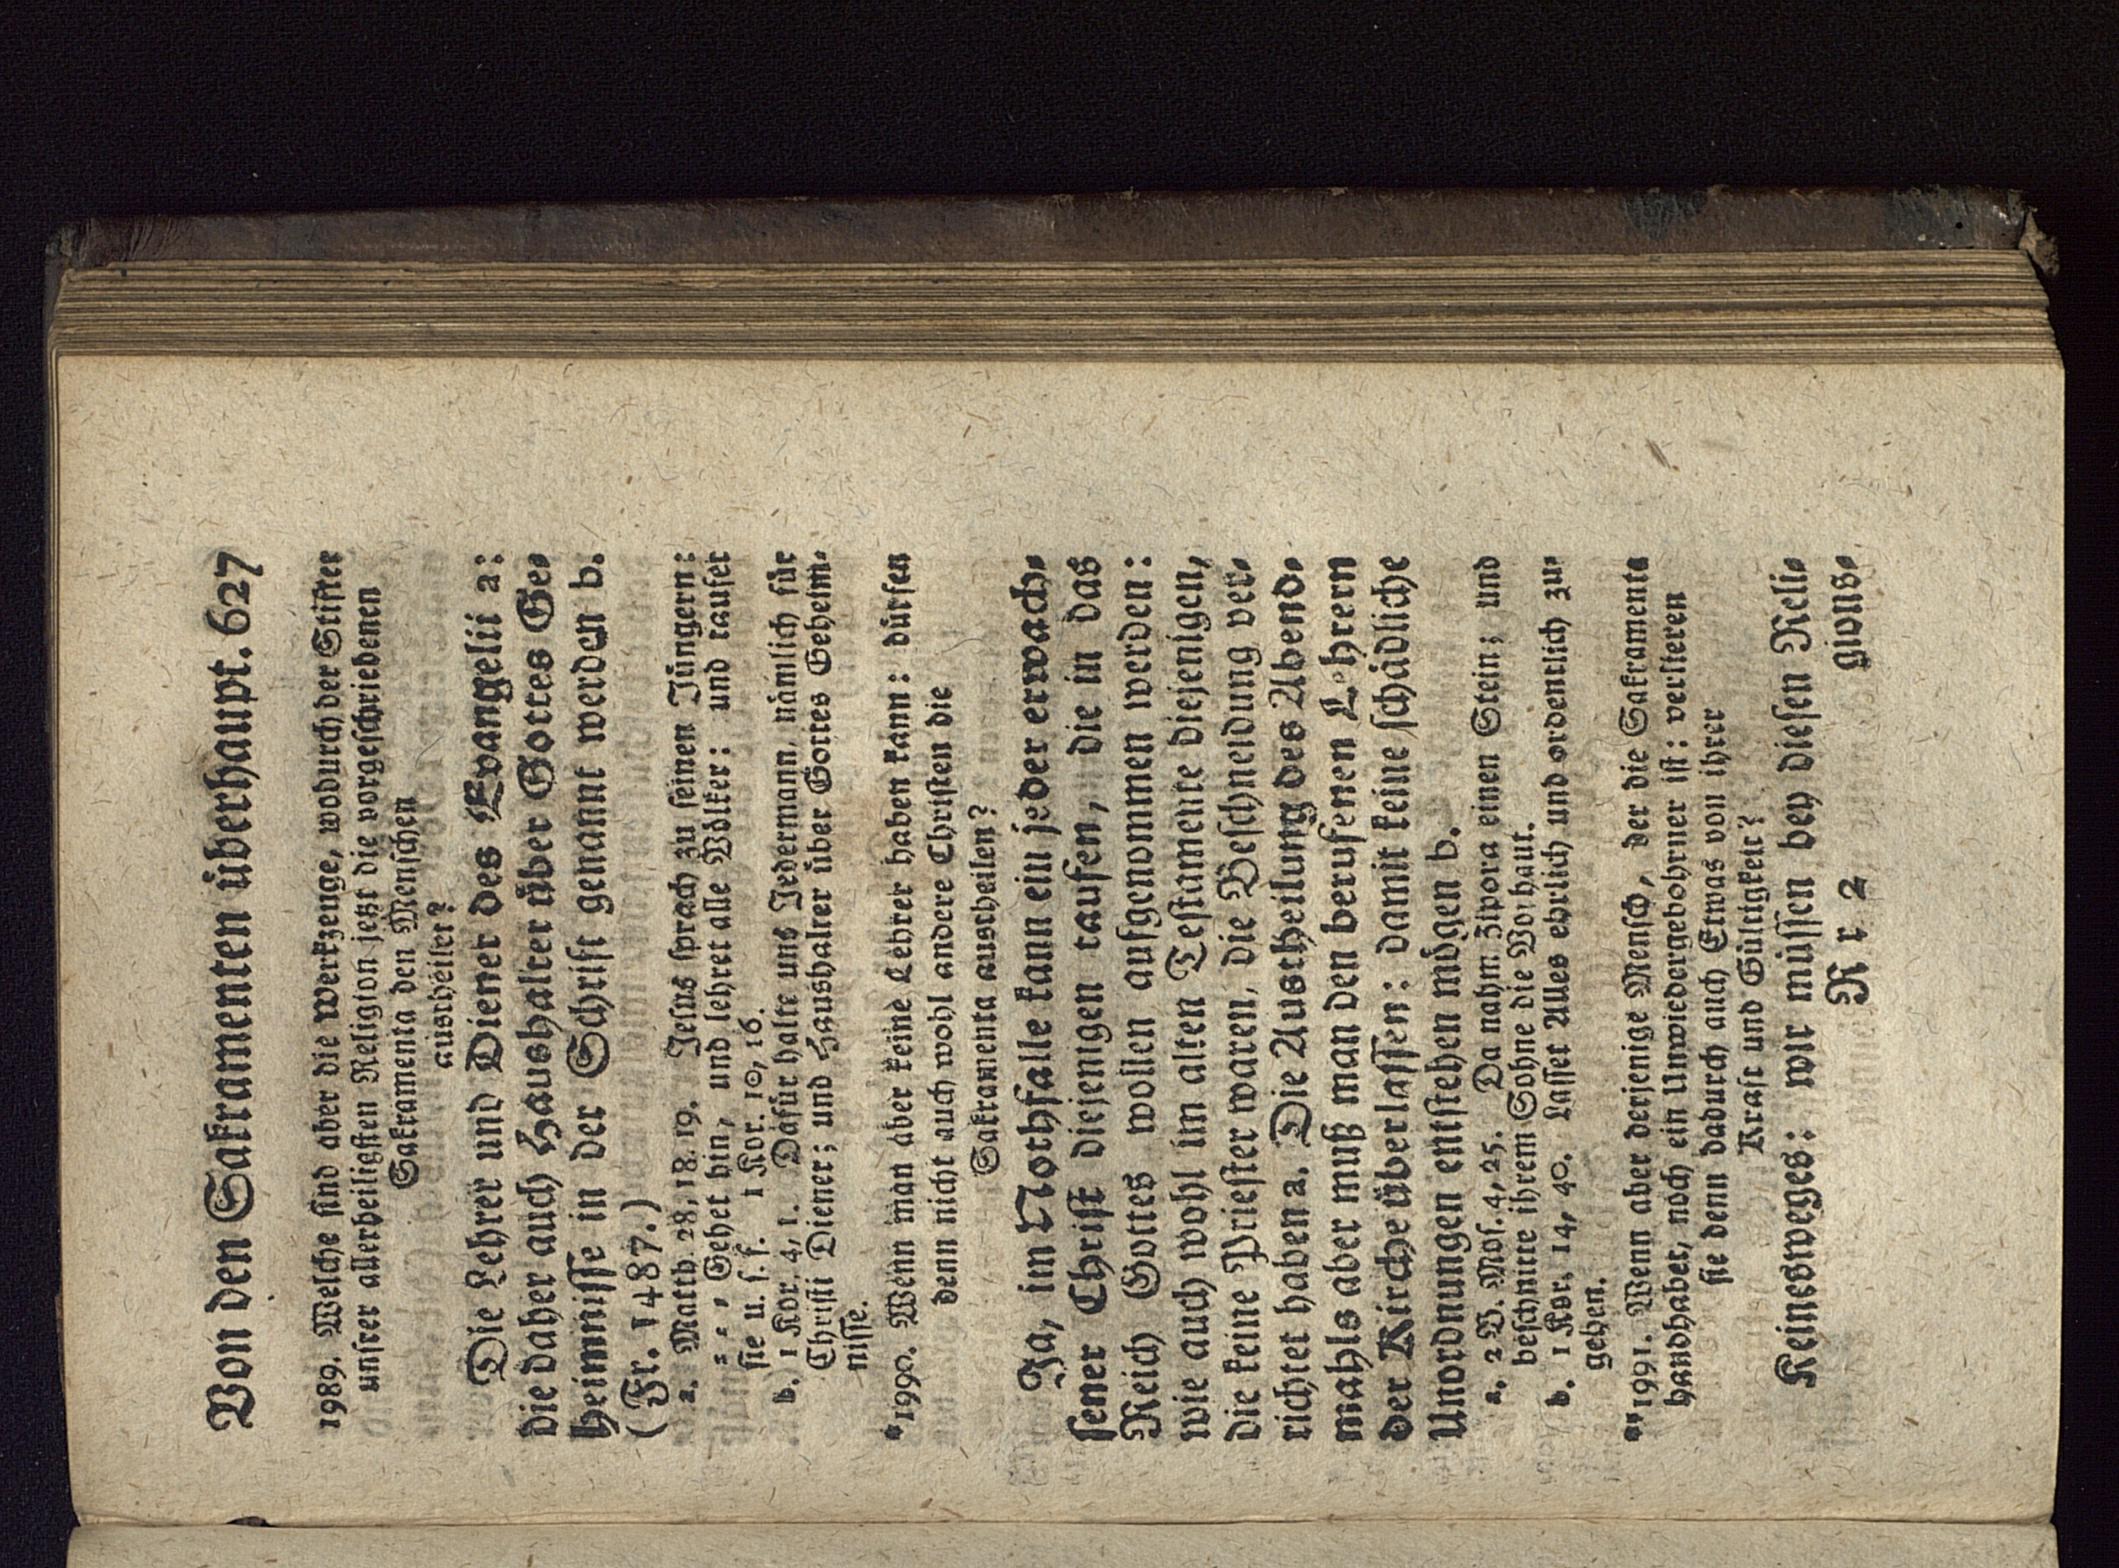 Von den Sakramenten überhaupt. 627
1989. Welche sind aber die Werkzeuge, wodurch der Stifter
unsrer allerheiligsten Religion jetzt die vorgeschriebenen
Sakramenta den Menschen
austheilet?
Die Lehrer und Diener des Evangelii a:
die daher auch Haushalter über Gottes Ge-
heimnisse in der Schrift genannt werden b.
(Fr. 1487.)
a. Matth. 28, 18. 19. Jesus sprach zu seinen Jüngern:
= = = Gehet hin, und lehret alle Völker: und taufet
sie u. s. f. 1 Kor. 10, 16.
b. 1 Kor. 4, 1. Dafür halte uns Jedermann, nämlich für
Christi Diener; und Haushalter über Gottes Geheim-
nisse.
*1990. Wenn man aber keine Lehrer haben kann: dürfen
denn nicht auch wohl andere Christen die
Sakramenta austheilen?
Ja, im Nothfalle kann ein jeder erwach-
sener Christ diejenigen taufen, die in das
Reich Gottes wollen aufgenommen werden:
wie auch wohl im alten Testamente diejenigen,
die keine Priester waren, die Beschneidung ver-
richtet haben a. Die Austheilung des Abend-
mahls aber muß man den berufenen Lehrern
der Kirche überlassen: damit keine schädliche
Unordnungen entstehen mögen b.
a. 2 B. Mos. 4, 25. Da nahm Zipora einen Stein; und
beschnitte ihrem Sohne die Vorhaut.
b. 1 Kor. 14, 40. Lasset Alles ehrlich und ordentlich zu-
gehen.
**1991. Wenn aber derjenige Mensch, der die Sakramenta
handhabet, noch ein Unwiedergebohrner ist: verlieren
sie denn dadurch auch Etwas von ihrer
Kraft und Gültigkeit?
Keinesweges: wir müssen bey diesen Reli-
R r 2 gions-